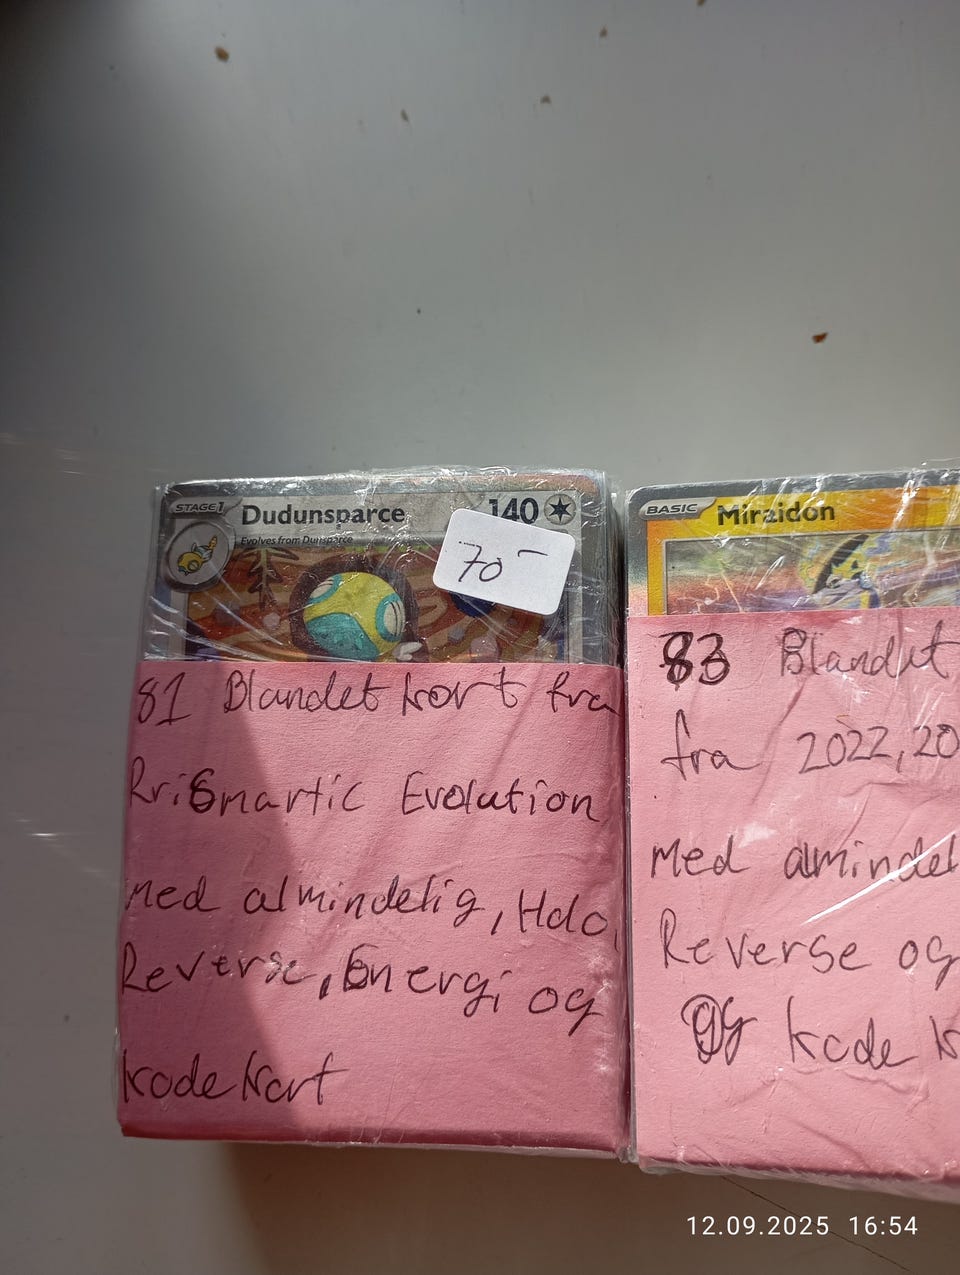 STAGE 1 Dudunsparce 140
Evolves from Dunsparce
70-
81 Blandet kort fra
Rrismartic Evolution
med almindelig, Holo,
Reverse, Energi og
kode kort
BASIC Miraidon
83 Blandet
fra 2022, 20
med almindel
Reverse og
og kode k
12.09.2025 16:54